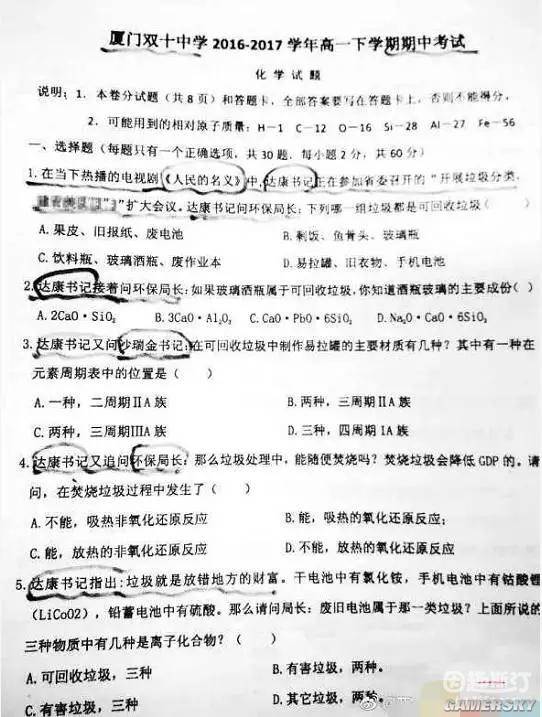 厦门双十中学2016-2017学年高一下学期期中考试
化学试题
说明：1．本卷分试题（共8页）和答题卡，全部答案要写在答题卡上，否则不能得分．
2．可能用到的相对原子质量：H—1 C—12 O—16 Si—28 Al—27 Fe—56
一、选择题（每题只有一个正确选项，共30题，每小题2分，共60分）
1.在当下热播的电视剧《人民的名义》中,达康书记正在参加省委召开的“开展垃圾分类，
”扩大会议。达康书记问环保局长：下列哪一组垃圾都是可回收垃圾（
A.果皮、旧报纸、废电池 B.剩饭、鱼骨头、玻璃瓶
C.饮料瓶、玻璃酒瓶、废作业本 D.易拉罐、旧衣物、手机电池
2.达康书记接着问环保局长:如果玻璃酒瓶属于可回收垃圾,你知道酒瓶玻璃的主要成份( )
A.2CaO·SiO₂ B.3CaO·Al₂O₃ C.CaO·PbO·6SiO₂ D.Na₂O·CaO·6SiO₂
3.达康书记又问沙瑞金书记:在可回收垃圾中制作易拉罐的主要材质有几种？其中有一种在
元素周期表中的位置是（ ）
A.一种，二周期ⅡA族 B.两种，三周期ⅡA族
C.两种，三周期ⅢA族 D.三种，四周期ⅠA族
4.达康书记又追问环保局长：那么垃圾处理中，能随便焚烧吗？焚烧垃圾会降低GDP的。请
问，在焚烧垃圾过程中发生了（ ）
A.不能，吸热非氧化还原反应 B.能，吸热的氧化还原反应；
C.能，放热的非氧化还原反应 D.不能，放热的氧化还原反应
5.达康书记指出:垃圾就是放错地方的财富。干电池中有氯化铵，手机电池中有钴酸锂
（LiCoO2），铅蓄电池中有硫酸。那么请问局长：废旧电池属于那一类垃圾？上面所说的
三种物质中有几种是离子化合物？（ ）
A.可回收垃圾，三种 B.有害垃圾，两种。
C.有害垃圾，三种 D.其它垃圾，两种。
GAMERSKY